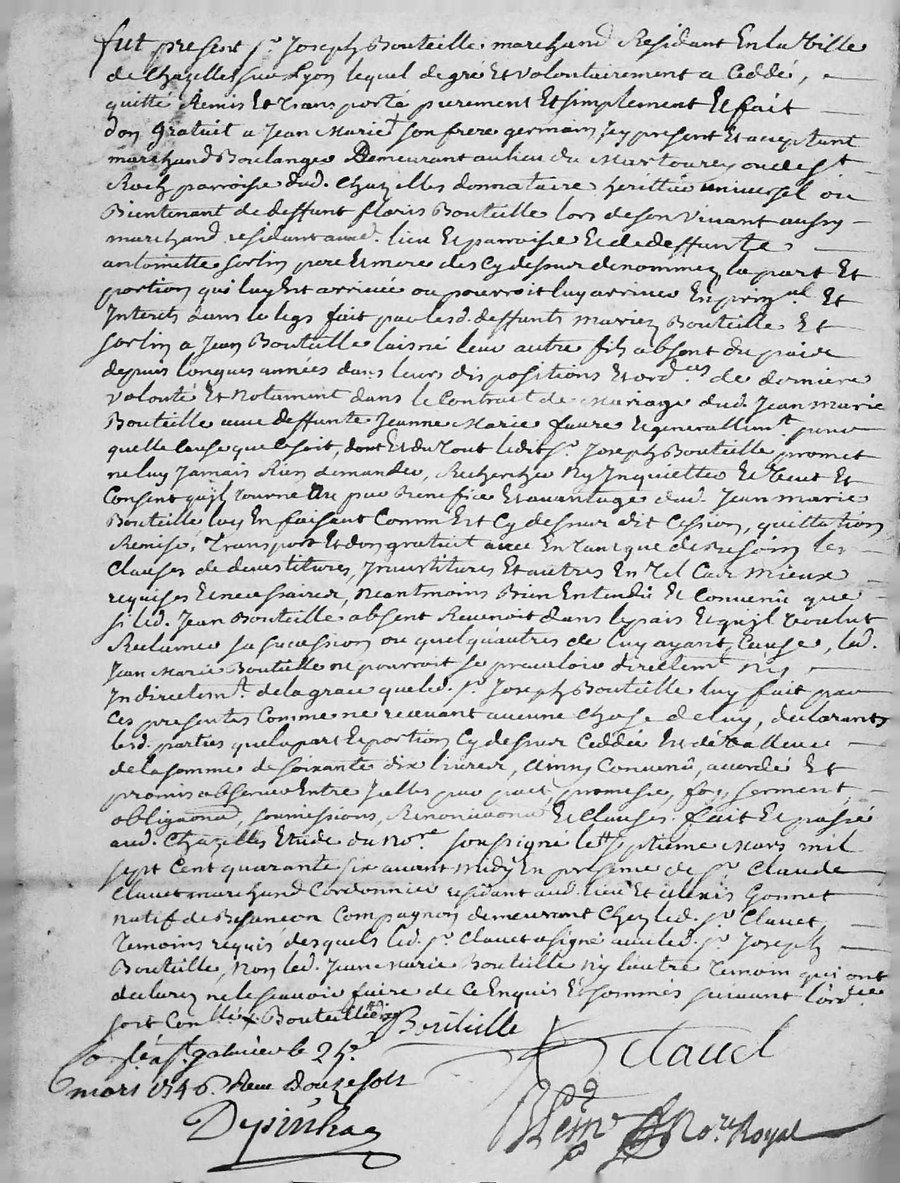 fut present sr. Joseph Bouteille marchand Residant En la Ville
de Chazelles sur Lyon lequel de gré Et volontairement a Ceddé,
quitté Remis Et transporté purement Et simplement Et fait
don gratuit a Jean Marie son frere germain Jcy present Et acceptant
marchand Boulanger Demeurant au lieu du Martourey ou de st.
Roch parroisse dud. Chazelles donnataire herittier universel ou
Bientenant de deffunt floris Bouteille lors de son vivant aussy
marchand residant aud. lieu Et parroisse Et de deffunte
antoinette sorlin pere Et mere des Cy dessur denommez la part Et
portion qui luy Est arrivée ou pourroit luy arriver En prin.al Et
Interets dans le legs fait par lesd. deffunts mariez Bouteille Et
sorlin a Jean Bouteille laisné leur autre fils absent du païs
depuis longues années dans leurs dispositions Et ord.ces de derniere
volonté Et notament dans le Contrait de Mariage dud. Jean Marie
Bouteille avec deffunte Jeanne Marie faure Et generallemt. pour
quelle Cause que Ce soit, dont Et du tout ledit sr. Joseph Bouteille promet
ne luy Jamais Rien demander, Rechercher Ny Jnquietter Et Veut Et
Consent quil tourne au pur Benefice Et avantage dud. Jean marie
Bouteille luy En faisant Comm Est Cy dessur dit Cession, quittation
Remise, Transport Et don gratuit avec En tant que de Besoin les
Clauses de devestitures, Jnvestitures Et autres En tel Cas Mieux
requises Et necessaires, Neantmoins Bien Entendu Et Convenû que
si led. Jean Bouteille absent Revenoit dans le païs Et quil voulut
Reclamer sa sucession ou quelquautres de luy ayant Cause, led.
Jean Marie Bouteille ne pourroit se prevaloir directemt. Ny
Jndirectemt. de la grace que led. sr. Joseph Bouteille luy fait par
Ces presentes Comme ne recevant aucune Chose de luy, declarants
lesd. parties que la part Et portion Cy dessur Ceddée Est de valleur
de la somme de soixante dix livres, Ainsy Convenû, accordé Et
promis observer Entre Jcelles par pact, promesse, foy, serment,
obligaõns, soumissions, Renonciaõns Et Clauses. fait Et passé
aud. Chazelles Etude du No.re soussigné le septieme Mars mil
sept Cent quarante six avant midy En presence de sr. Claude
Clavet marchand Cordonnier residant aud. lieu Et Alexis Gonnet
natif de Besancon Compagnon demeurant Chez led. sr. Clavet
temoins requis desquels led. sr. Clavet a signé avec led. sr. Joseph
Bouteille, Non led. Jean Marie Bouteille Ny lautre temoin qui ont
declarez ne le scavoir faire de Ce Enquis Et sommés suivant lord.ce
Bouteille Clavet
a st. galmier le 21e.
mars 1746. Reçu Douze sols
No.re Royal